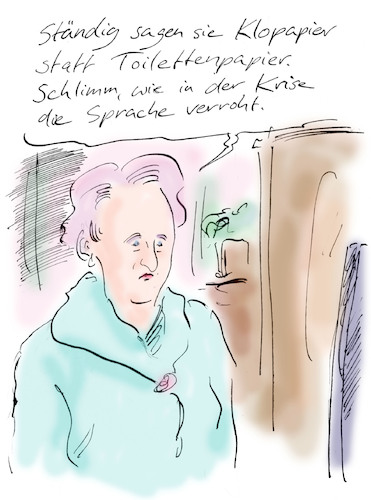 Ständig sagen sie Klopapier
statt Toilettenpapier.
Schlimm, wie in der Krise
die Sprache verroht.